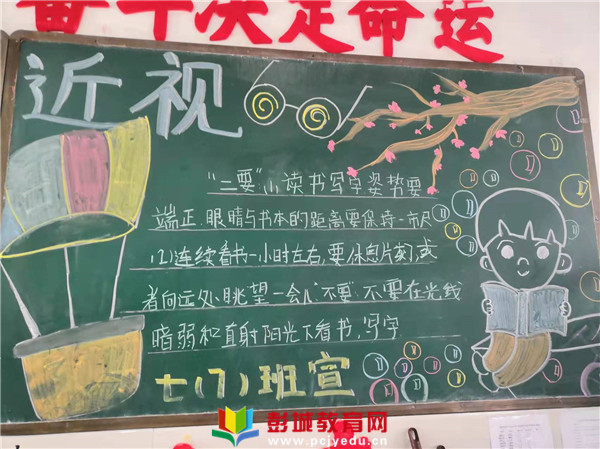 奋斗决定命运
近视
"二要"⑴读书写字姿势要
端正.眼睛与书本的距离要保持一市尺
⑵连续看书一小时左右,要休息片刻,或
者向远处眺望一会儿"不要"不要在光线
暗弱和直射阳光下看书,写字
七(7)班宣
彭城教育网
www.pcjyedu.cn